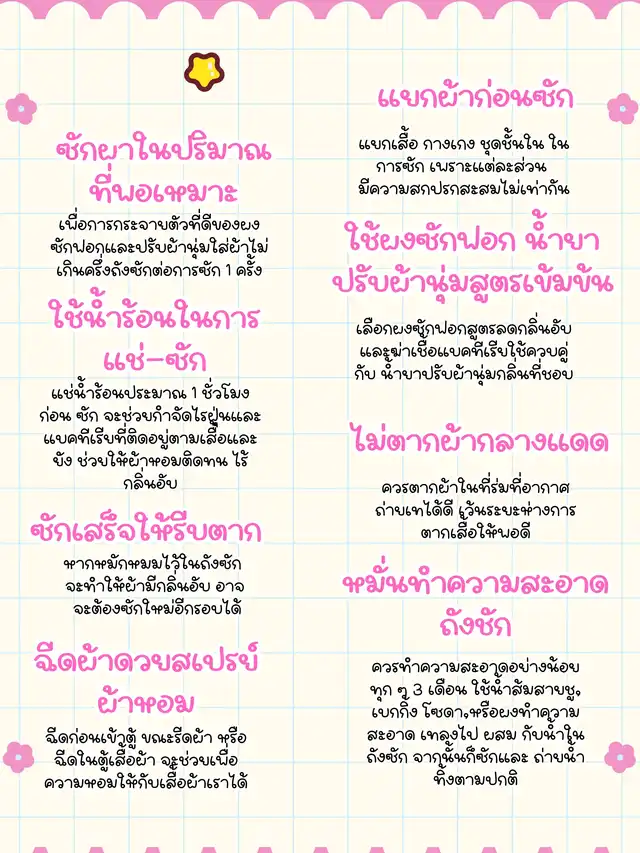 ซักผาในปริมาณ
ที่พอเหมาะ
เพื่อการกระจายตัวที่ดีของผง
ซักฟอกและปรับผ้านุ่มใส่ผ้าไม่
เกินครึ่งถังซักต่อการซัก 1 ครั้ง
ใช้น้ำร้อนในการ
แช่-ซัก
แช่น้ำร้อนประมาณ 1 ชั่วโมง
ก่อน ซัก จะช่วยกำจัดไรฝุ่นและ
แบคทีเรียที่ติดอยู่ตามเสื้อและ
ยัง ช่วยให้ผ้าหอมติดทน ไร้
กลิ่นอับ
ซักเสร็จให้รีบตาก
หากหมักหมมไว้ในถังซัก
จะทำให้ผ้ามีกลิ่นอับ อาจ
จะต้องซักใหม่อีกรอบได้
ฉีดผ้าดวยสเปรย์
ผ้าหอม
ฉีดก่อนเข้าตู้ ขณะรีดผ้า หรือ
ฉีดในตู้เสื้อผ้า จะช่วยเพื่อ
ความหอมให้กับเสื้อผ้าเราได้
แยกผ้าก่อนซัก
แยกเสื้อ กางเกง ชุดชั้นใน ใน
การซัก เพราะแต่ละส่วน
มีความสกปรกสะสมไม่เท่ากัน
ใช้ผงซักฟอก น้ำยา
ปรับผ้านุ่มสูตรเข้มข้น
เลือกผงซักฟอกสูตรลดกลิ่นอับ
และฆ่าเชื้อแบคทีเรียใช้ควบคู่
กับ น้ำยาปรับผ้านุ่มกลิ่นที่ชอบ
ไม่ตากผ้ากลางแดด
ควรตากผ้าในที่ร่มที่อากาศ
ถ่ายเทได้ดี เว้นระยะห่างการ
ตากเสื้อให้พอดี
หมั่นทำความสะอาด
ถังซัก
ควรทำความสะอาดอย่างน้อย
ทุก ๆ 3 เดือน ใช้น้ำส้มสายชู,
เบกกิ้ง โซดา,หรือผงทำความ
สะอาด เทลงไป ผสม กับน้ำใน
ถังซัก จากนั้นก็ซักและ ถ่ายน้ำ
ทิ้งตามปกติ